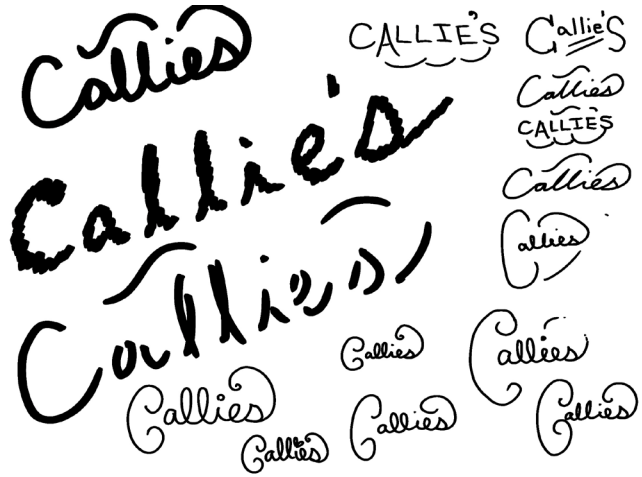 Callies
CALLIE'S
Callie's
Callies
CALLIE'S
Callie's
Callies
Callies
Callies
Callies
Callies
Callies
Callies
Callies
Callies